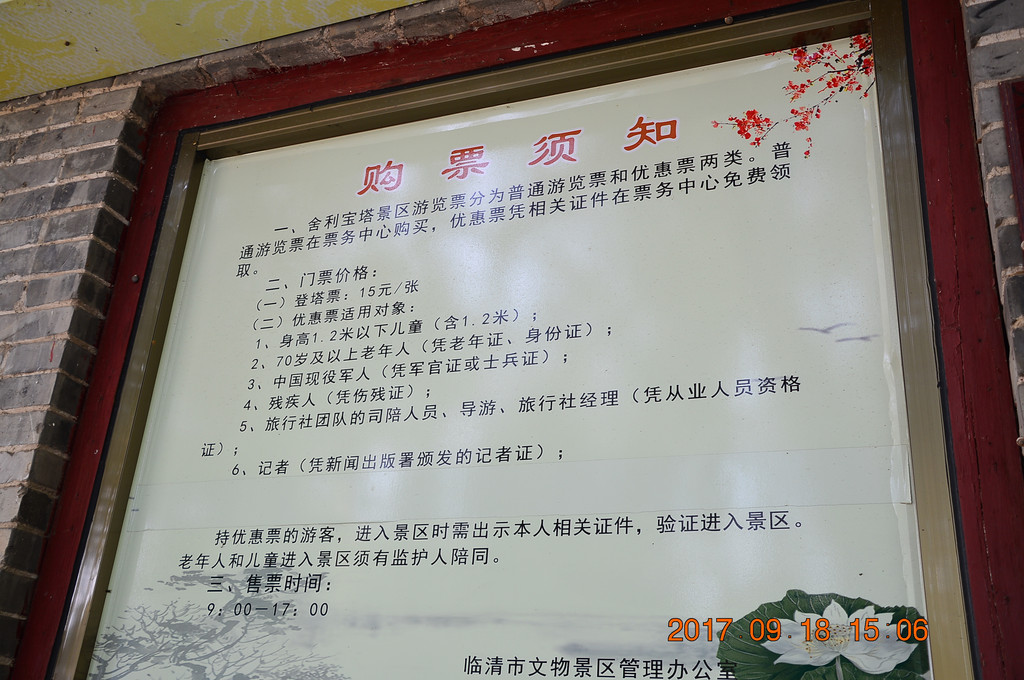 购票须知
一、舍利宝塔景区游览票分为普通游览票和优惠票两类。普
通游览票在票务中心购买，优惠票凭相关证件在票务中心免费领
取。
二、门票价格：
（一）登塔票：15元/张
（二）优惠票适用对象：
1、身高1.2米以下儿童（含1.2米）；
2、70岁及以上老年人（凭老年证、身份证）；
3、中国现役军人（凭军官证或士兵证）；
4、残疾人（凭伤残证）；
5、旅行社团队的司陪人员、导游、旅行社经理（凭从业人员资格
证）；
6、记者（凭新闻出版署颁发的记者证）；
持优惠票的游客，进入景区时需出示本人相关证件，验证进入景区。
老年人和儿童进入景区须有监护人陪同。
三、售票时间：
9：00－17：00
临清市文物景区管理办公室
2017.09.18 15:06